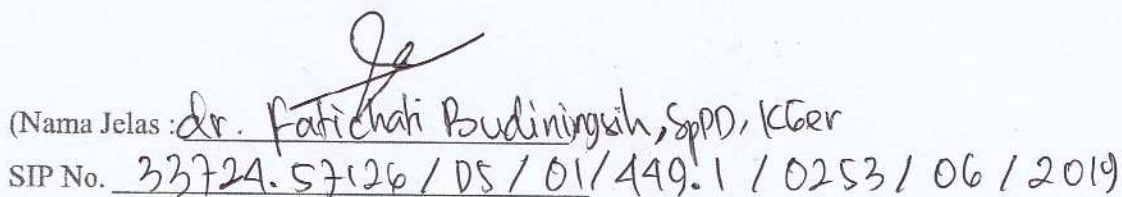 (Nama Jelas : dr. Fatichati Budiningsih, SpPD, KGer
SIP No. 33724.57126 / DS / 01 / 449.1 / 0253 / 06 / 2019